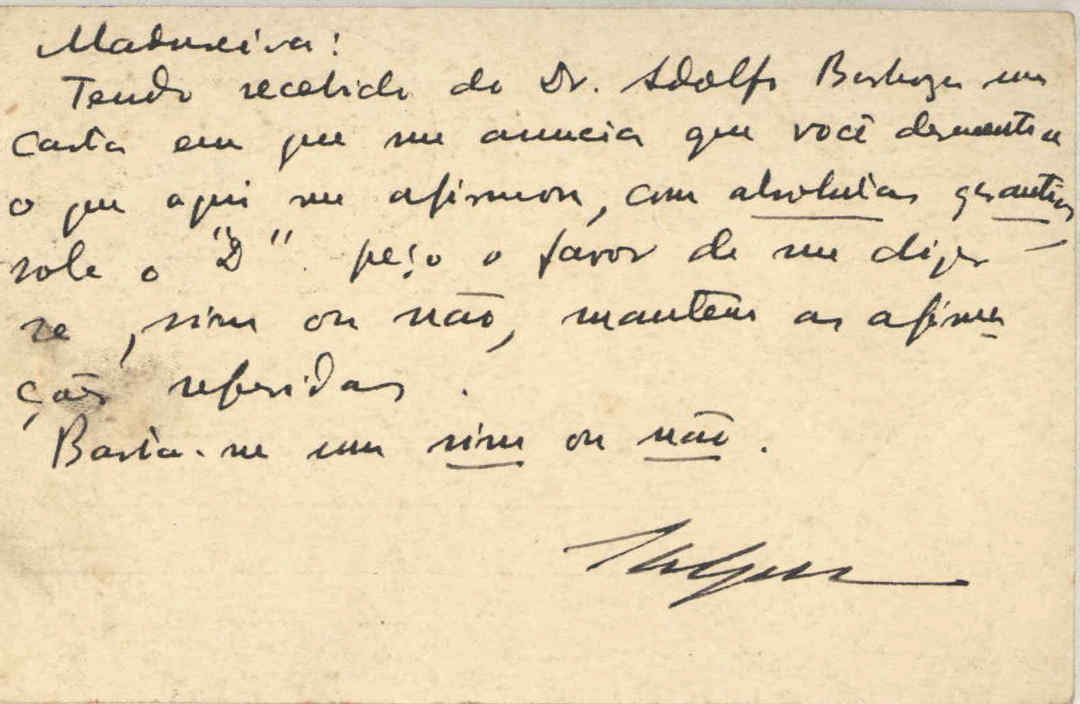 Madureira!
Tendo recebido do Dr. Adolfo Barboza uma
carta em que me anuncia que você desmentiu
o que aqui me afirmou, com absolutas garantias
sobre o "D" peço o favor de me dizer
se, sim ou não, mantem as afirma
ções referidas.
Basta-me um sim ou não.